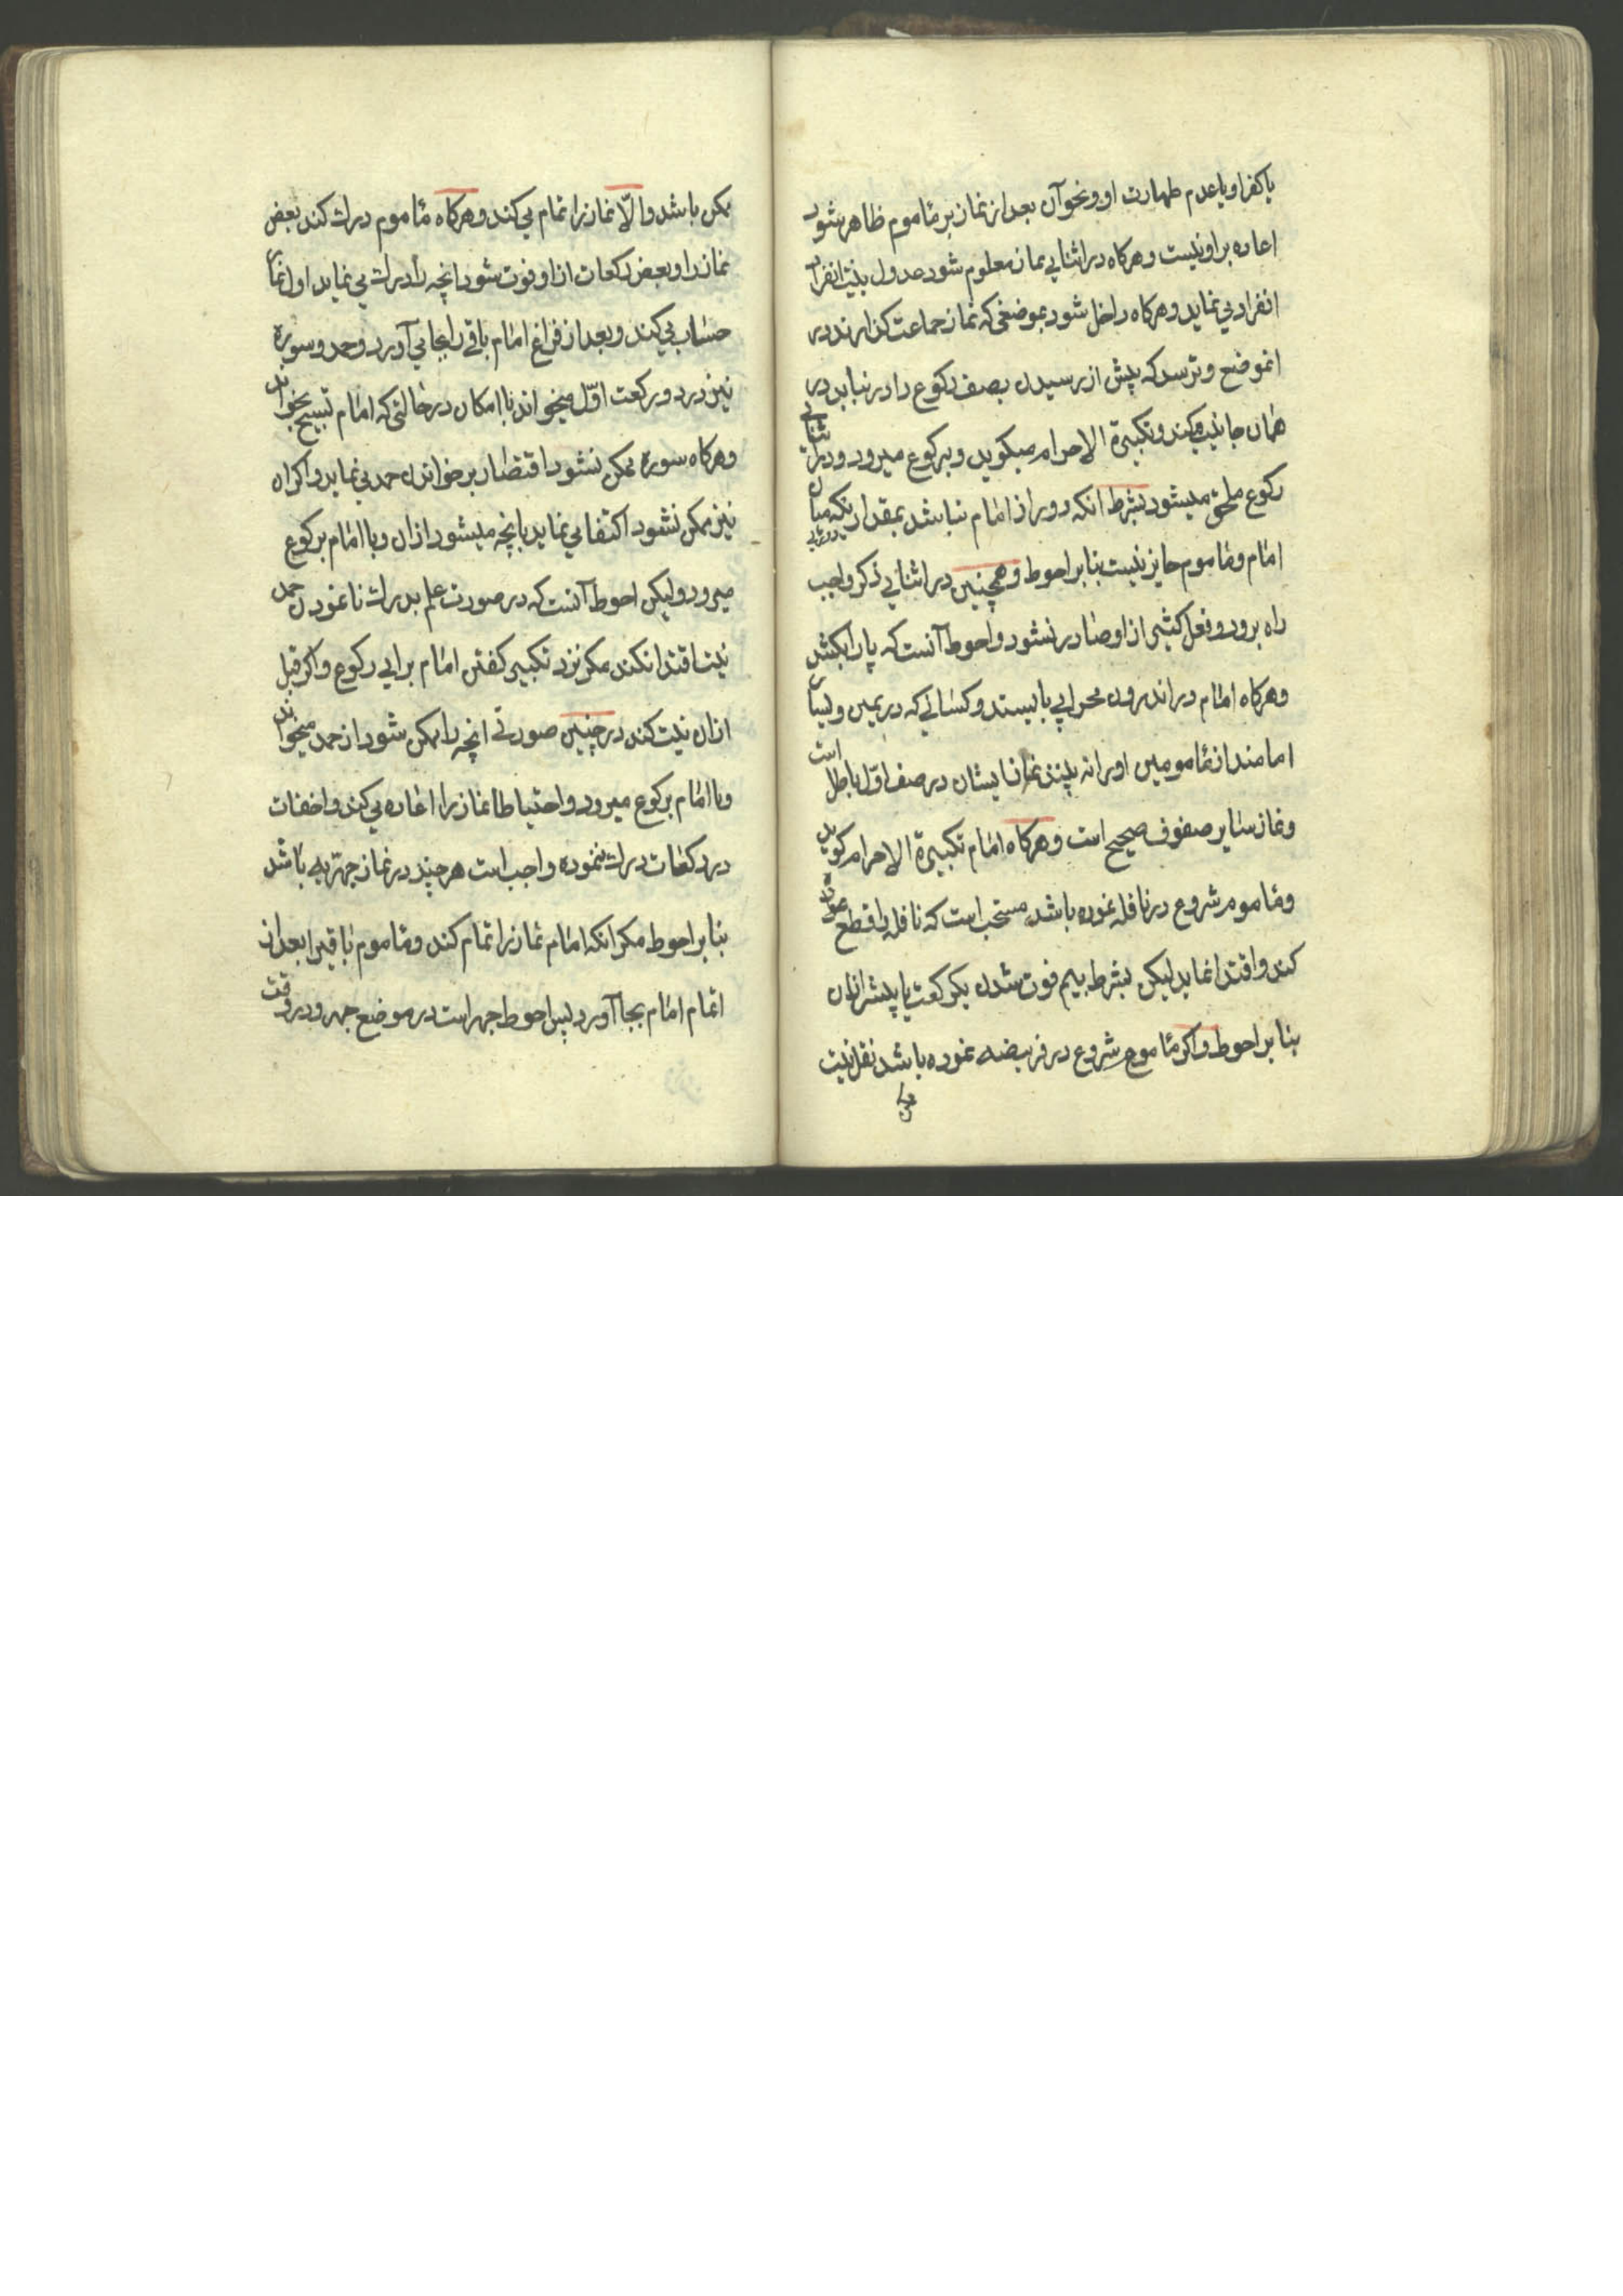 یا کفر او یا عدم طهارت او و نحو آن بعد از نماز بر مأموم ظاهر شود
اعاده بر او نیست و هرکاه در اثنای نماز معلوم شود عدول بنیت انفراد
انفراد می نماید و هرکاه داخل شود بموضعی که نماز جماعت کذارند در
انموضع و ترسد که پیش از رسیدن بصف رکوع را در نیابد در
همان جا نیت میکند و تکبیرة الاحرام میکوید و برکوع میرود و در اثنای
رکوع ملحق میشود بشرط انکه دور از امام نباشد بمقداریکه میان
امام و مأموم جایز نیست بنا بر احوط و همچنین در اثنای ذکر واجب
راه نرود و فعل کثیر از او صادر نشود و احوط آنست که پا را بکشد
و هرکاه امام در اندرون محرابی بایستد و کسانی که در یمین و یسار
امامند از مأمومین او را نه بینند نماز ایشان در صف اوّل باطل است
و نماز سایر صفوف صحیح است و هرکاه امام تکبیرة الاحرام کوید
و مأموم شروع در نافله نموده باشد مستحب است که نافله را قطع
کند و اقتدا نماید لیکن بشرط بیم فوت شدن یکرکعت یا پیشتر از ان
بنا بر احوط و اکر مأموم شروع در فریضه نموده باشد نقل نیت
ممکن باشد والّا نماز را تمام می کند و هرکاه مأموم درک کند بعض
نماز را و بعض رکعات از او فوت شود انچه را درک می نماید اول نماز
حساب می کند و بعد از فراغ امام باقی را بجا می آورد و حمد و سوره
نیز در دو رکعت اوّل میخواند با امکان در حالتی که امام تسبیح بخواند
و هرکاه سوره ممکن نشود اقتصار بر خواندن حمد می نماید و اکر ان
نیز ممکن نشود اکتفا می نماید بانچه میشود از ان و با امام برکوع
میرود ولیکن احوط آنست که در صورت علم بدرک نا نمودن حمد
نیت اقتدا نکند مکر نزد تکبیر کفتن امام برای رکوع و اکر قبل
از ان نیت کند در چنین صورتی انچه را ممکن شود از حمد میخواند
و با امام برکوع میرود و احتیاطا نماز را اعاده می کند و اخفات
در رکعات درک ننموده واجب است هرچند در نماز جهرّیه باشد
بنا بر احوط مکر انکه امام نماز را تمام کند و مأموم باقیرا بعد از
اتمام امام بجا آورد پس احوط جهر است در موضع جهر و در وقت